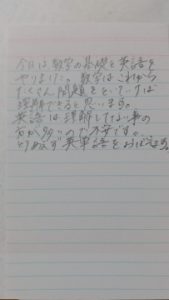 今日は数学の基礎と英語を
やりました。数学はこれから
たくさん問題をといていけば
理解できると思います。
英語は理解してない事の
方が多いので不安です。
とりあえず英単語をおぼえます